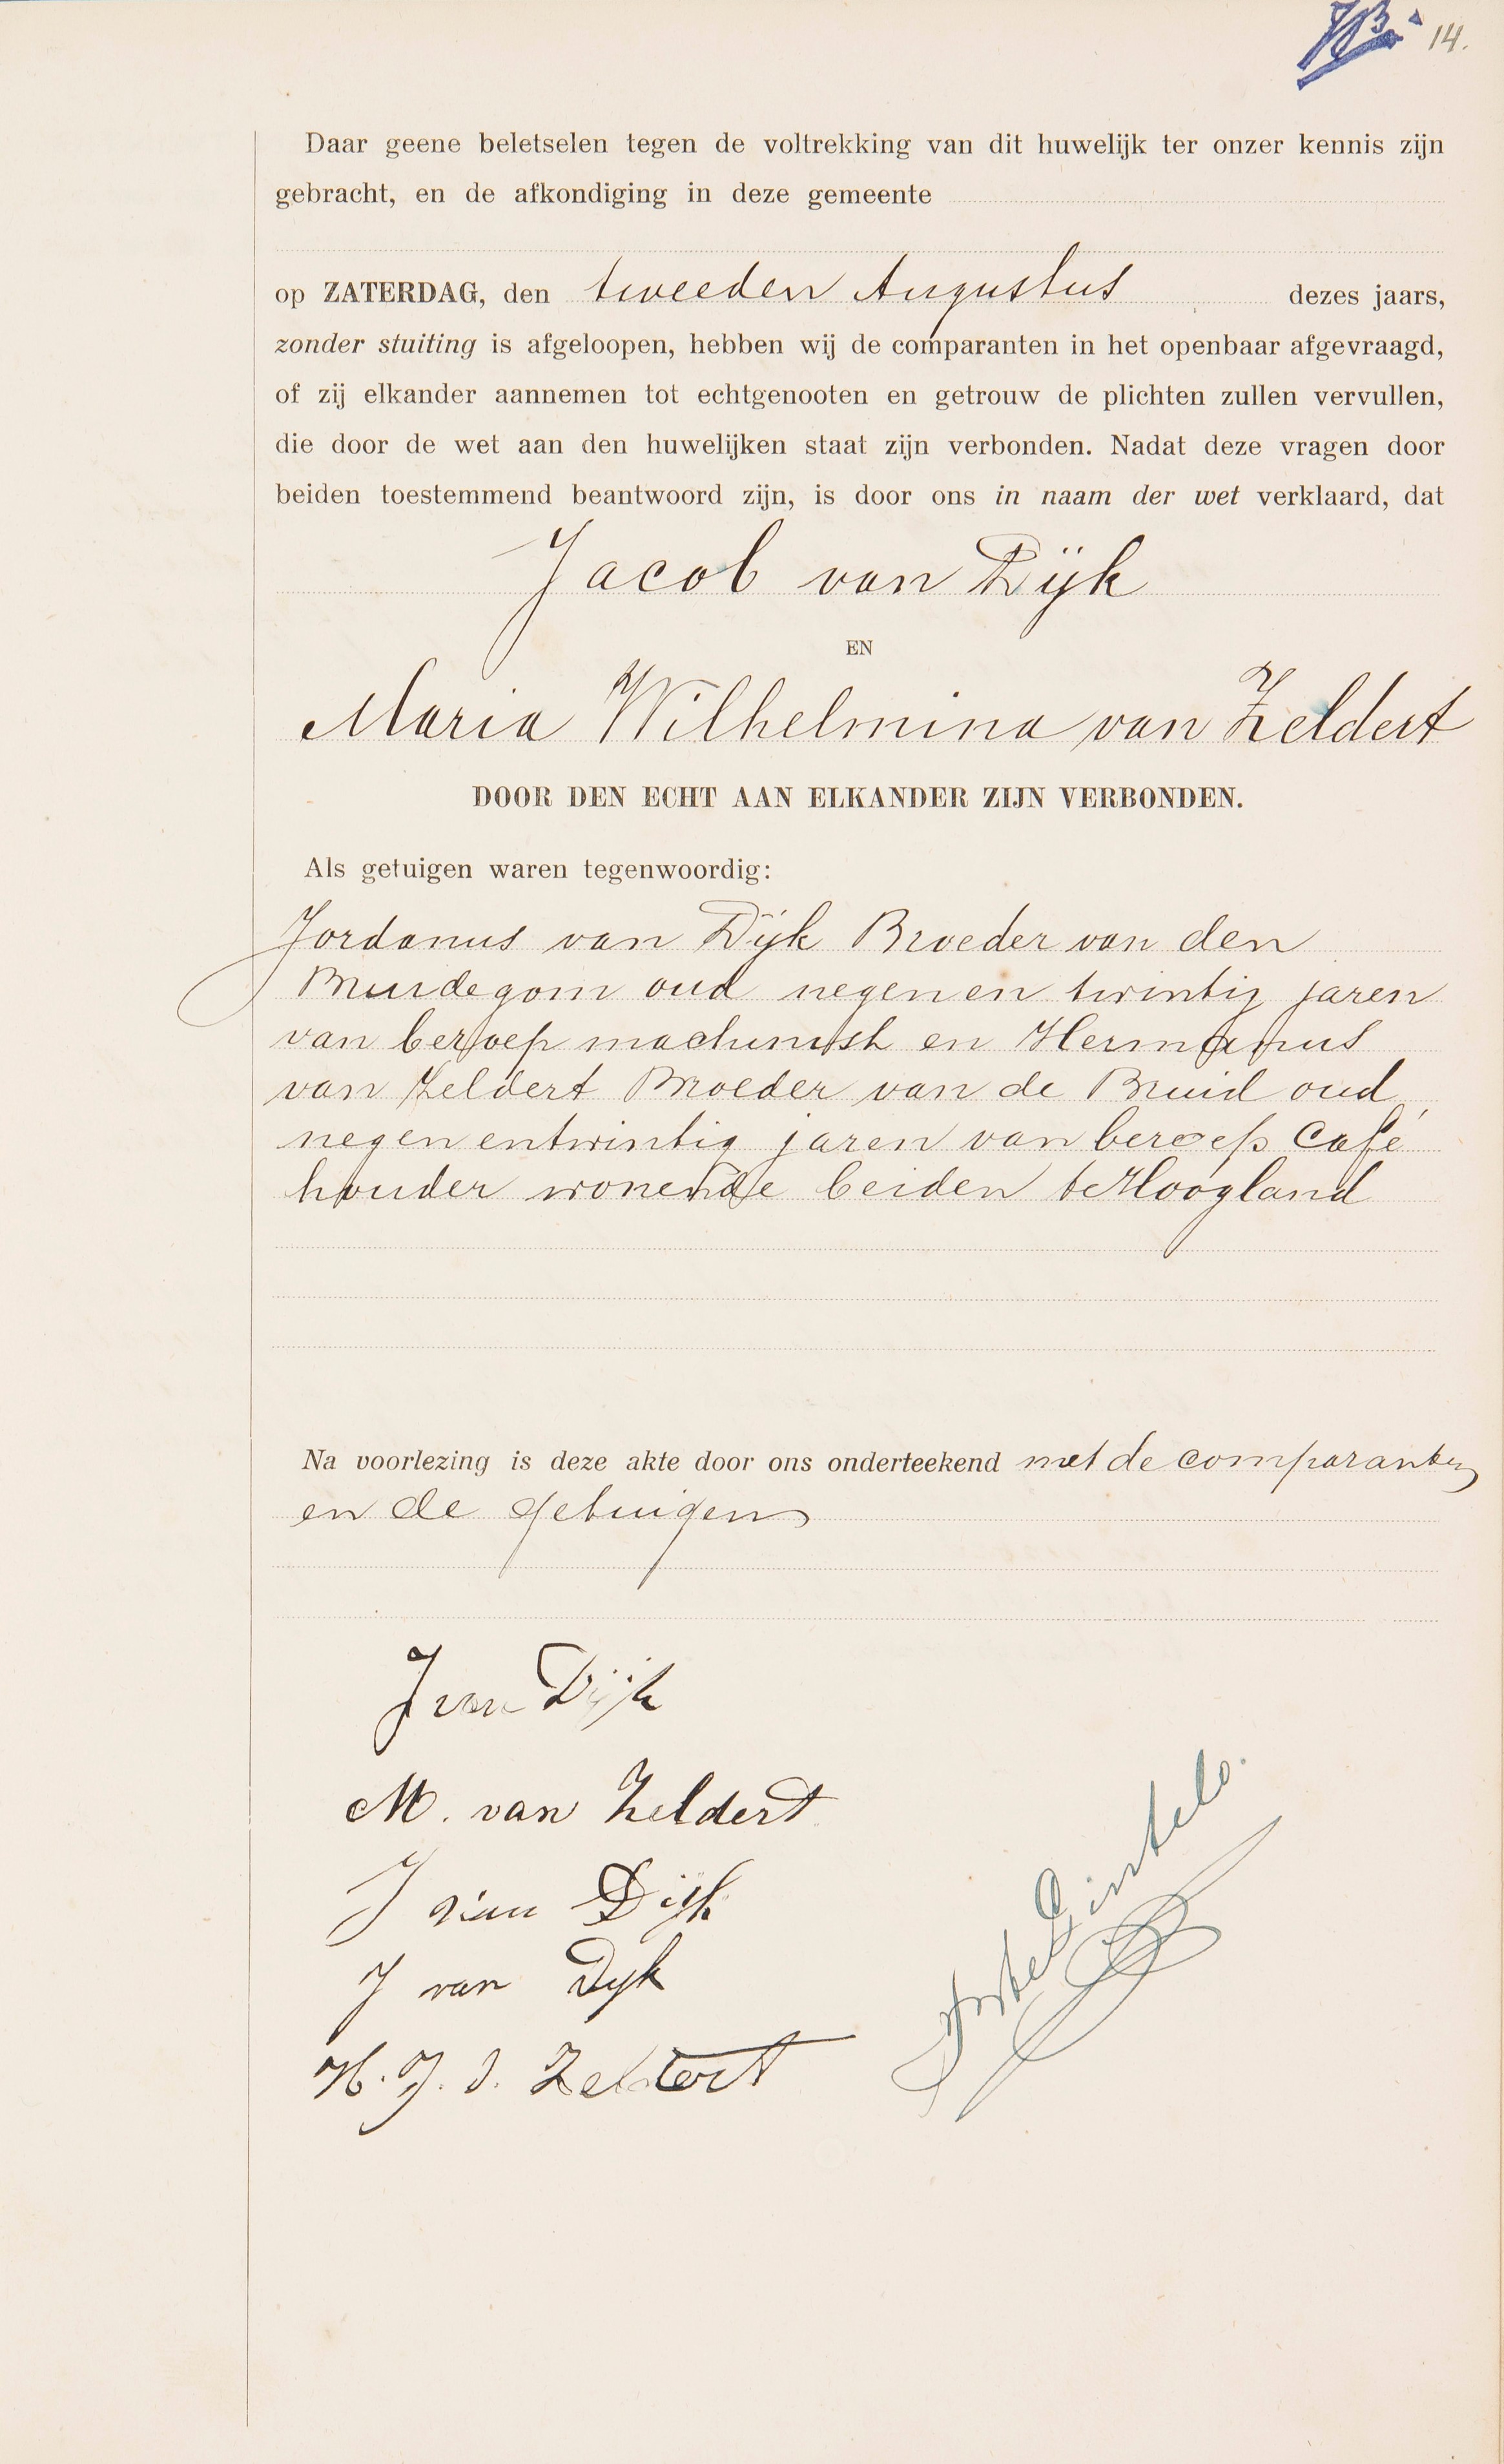 14.
Daar geene beletselen tegen de voltrekking van dit huwelijk ter onzer kennis zijn
gebracht, en de afkondiging in deze gemeente
op ZATERDAG, den tweeden Augustus dezes jaars,
zonder stuiting is afgeloopen, hebben wij de comparanten in het openbaar afgevraagd,
of zij elkander aannemen tot echtgenooten en getrouw de plichten zullen vervullen,
die door de wet aan den huwelijken staat zijn verbonden. Nadat deze vragen door
beiden toestemmend beantwoord zijn, is door ons in naam der wet verklaard, dat
Jacob van Dijk
EN
Maria Wilhelmina van Zeldert
DOOR DEN ECHT AAN ELKANDER ZIJN VERBONDEN.
Als getuigen waren tegenwoordig:
Jordanus van Dijk Broeder van den
Bruidegom oud negen en twintig jaren
van beroep machinist en Hermanus
van Zeldert Broeder van de Bruid oud
negen entwintig jaren van beroep Café
houder wonende beiden te Hoogland
Na voorlezing is deze akte door ons onderteekend met de comparanten
en de getuigen
J van Dijk
M. van Zeldert
J van Dijk
J van Dyk
H. J. v. Zeldert